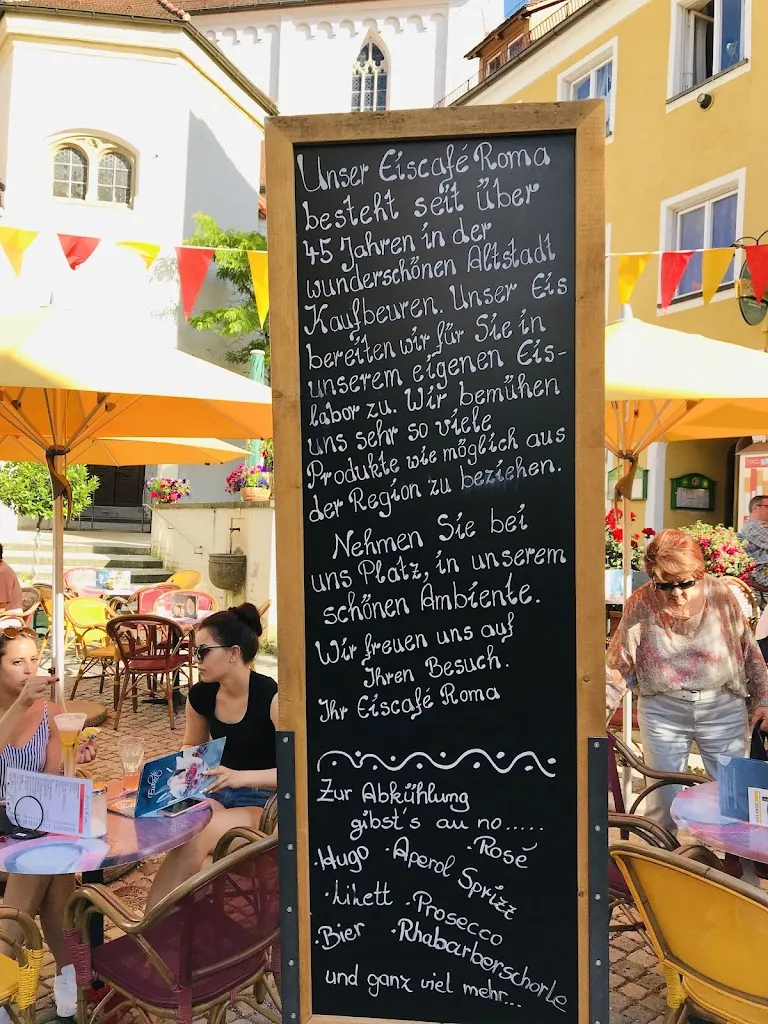 Unser Eiscafé Roma
besteht seit über
45 Jahren in der
wunderschönen Altstadt
Kaufbeuren. Unser Eis
bereiten wir für Sie in
unserem eigenen Eis-
labor zu. Wir bemühen
uns sehr so viele
Produkte wie möglich aus
der Region zu beziehen.
Nehmen Sie bei
uns Platz, in unserem
schönen Ambiente.
Wir freuen uns auf
Ihren Besuch.
Ihr Eiscafé Roma
Zur Abkühlung
gibst's au no.....
·Hugo ·Aperol Sprizz ·Rosé
·Lilett ·Prosecco
·Bier ·Rhabarberschorle
und ganz viel mehr...